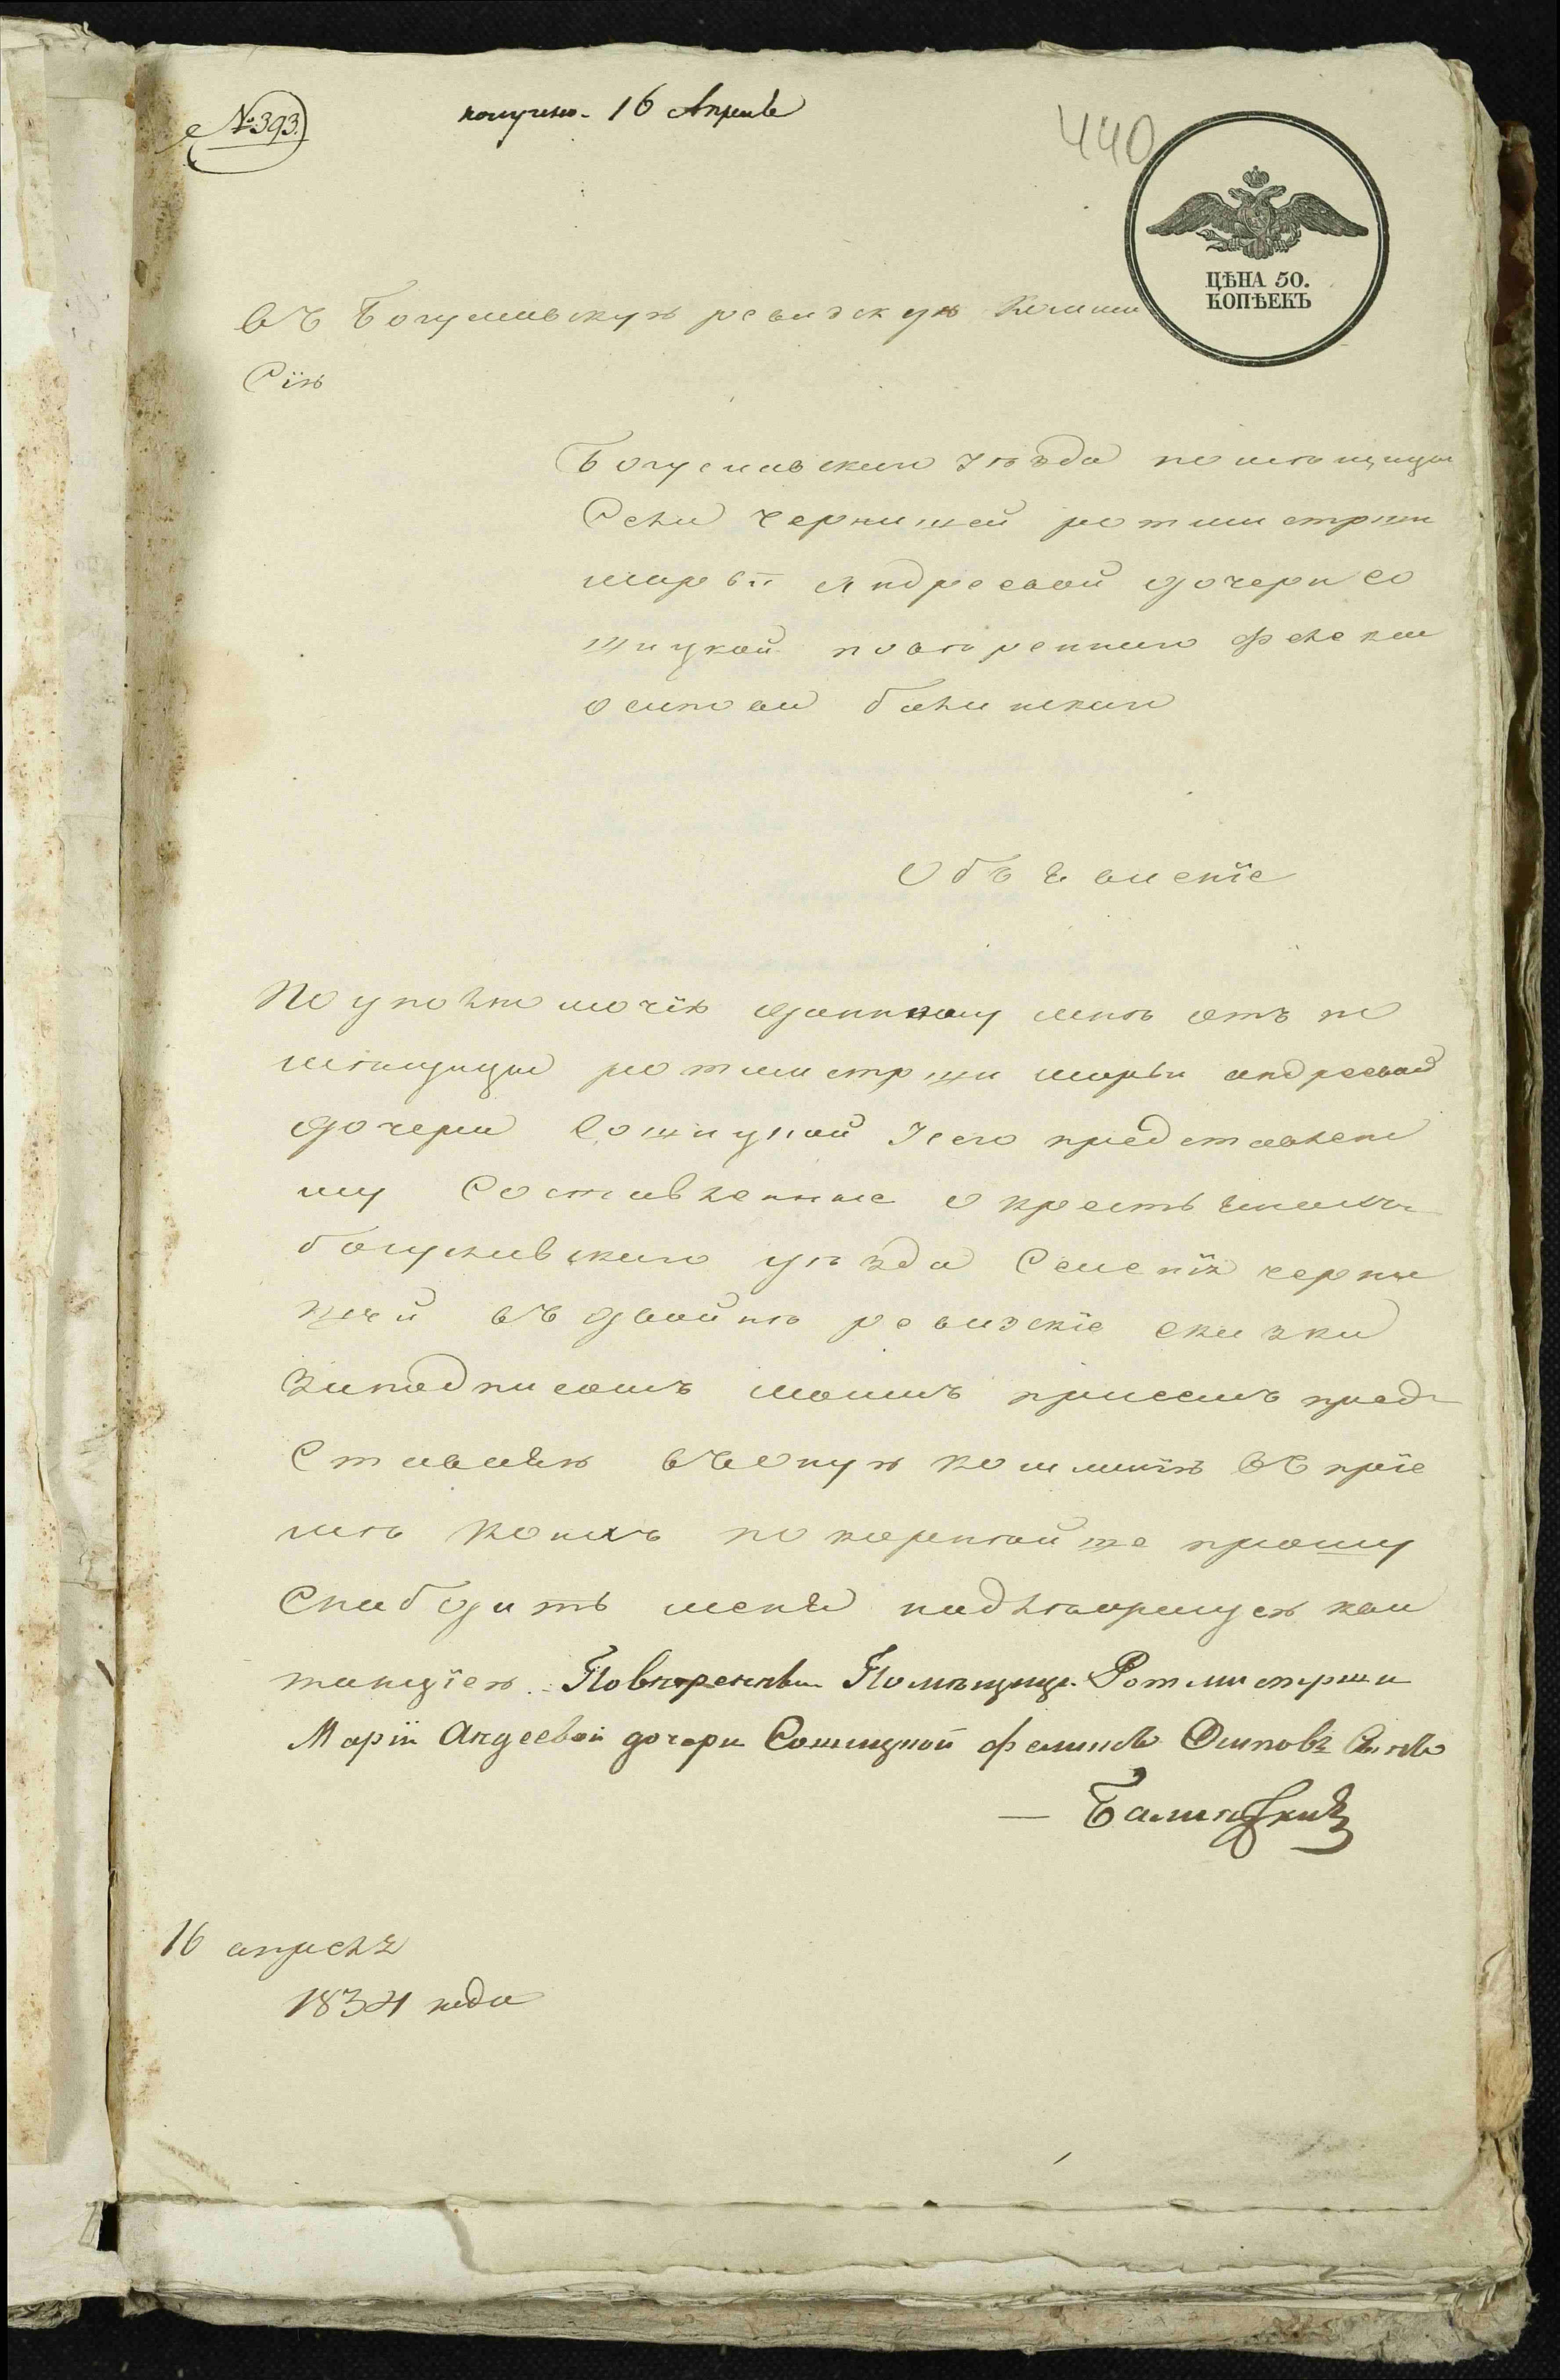 № 393.
получено. 16 Апреля
440
ЦѢНА 50.
КОПѢЕКЪ
въ Богуславскую ревизскую Комми
Сїю
Богуславскаго уѣзда помѣщицы
Села чернишей ротмистрши
марьи Андреевой дочери со
повѣренного феликса
осипова балинскаго
Объявленїе
По уполномочїю данному мнѣ отъ по
мѣщицы ротмистрши марьи андреевой
дочери
му Составленные о крестьянахъ
богуславскаго уѣзда Селенїя черны
шей въ двойнѣ ревизскїе сказки
заподписомъ моимъ присемъ пред
Ставляю въ оную коммисїю въ прїе
мѣ коихъ покорнейше прошу
Снабдить меня надлежащею кви
танцїею. Повѣренный Помѣщицы Ротмистрши
Марїи Андеевой дочери Сошицкой феликсъ Осиповъ Сынъ
— Балинскїй
16 апреля
1834 года